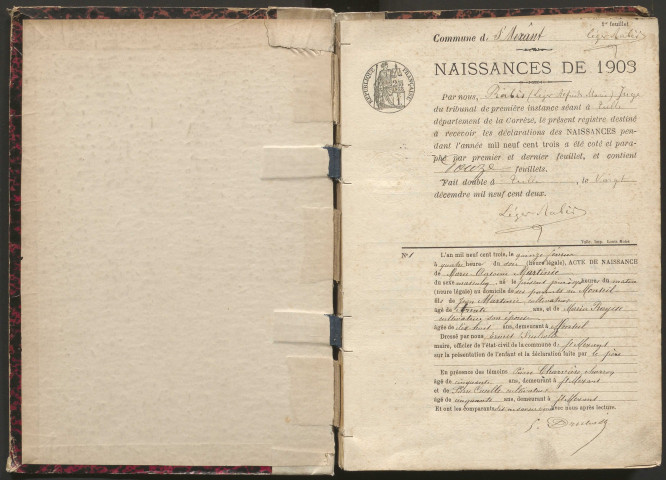 1er feuillet
Commune de St Mexant
NAISSANCES DE 1903
RÉPUBLIQUE FRANÇAISE
Par nous, Juge
du tribunal de première instance séant à Tulle
département de la Corrèze, le présent registre destiné
à recevoir les déclarations des NAISSANCES pen-
dant l'année mil neuf cent trois a été coté et para-
phé par premier et dernier feuillet, et contient
douze feuillets.
Fait double à Tulle, le vingt
décembre mil neuf cent deux.
Tulle, Imp.
N° 1
L'an mil neuf cent trois, le quinze janvier
à quatre heure du soir (heure légale), ACTE DE NAISSANCE
de Martinie
du sexe masculin, né le présent jour à heures du matin
(heure légale) au domicile de ses parents au Monteil
fils de Jean Martinie cultivateur
âgé de trente ans, et de Maria
cultivatrice son épouse
âgée de dix huit ans, demeurant à Monteil
Dressé par nous
maire, officier de l'état-civil de la commune de St Mexant
sur la présentation de l'enfant et la déclaration faite par le père
En présence des témoins Pierre
âgé de cinquante ans, demeurant à St Mexant
et de cultivateur
âgé de cinquante ans, demeurant à St Mexant
Et ont les comparants avec nous après lecture.